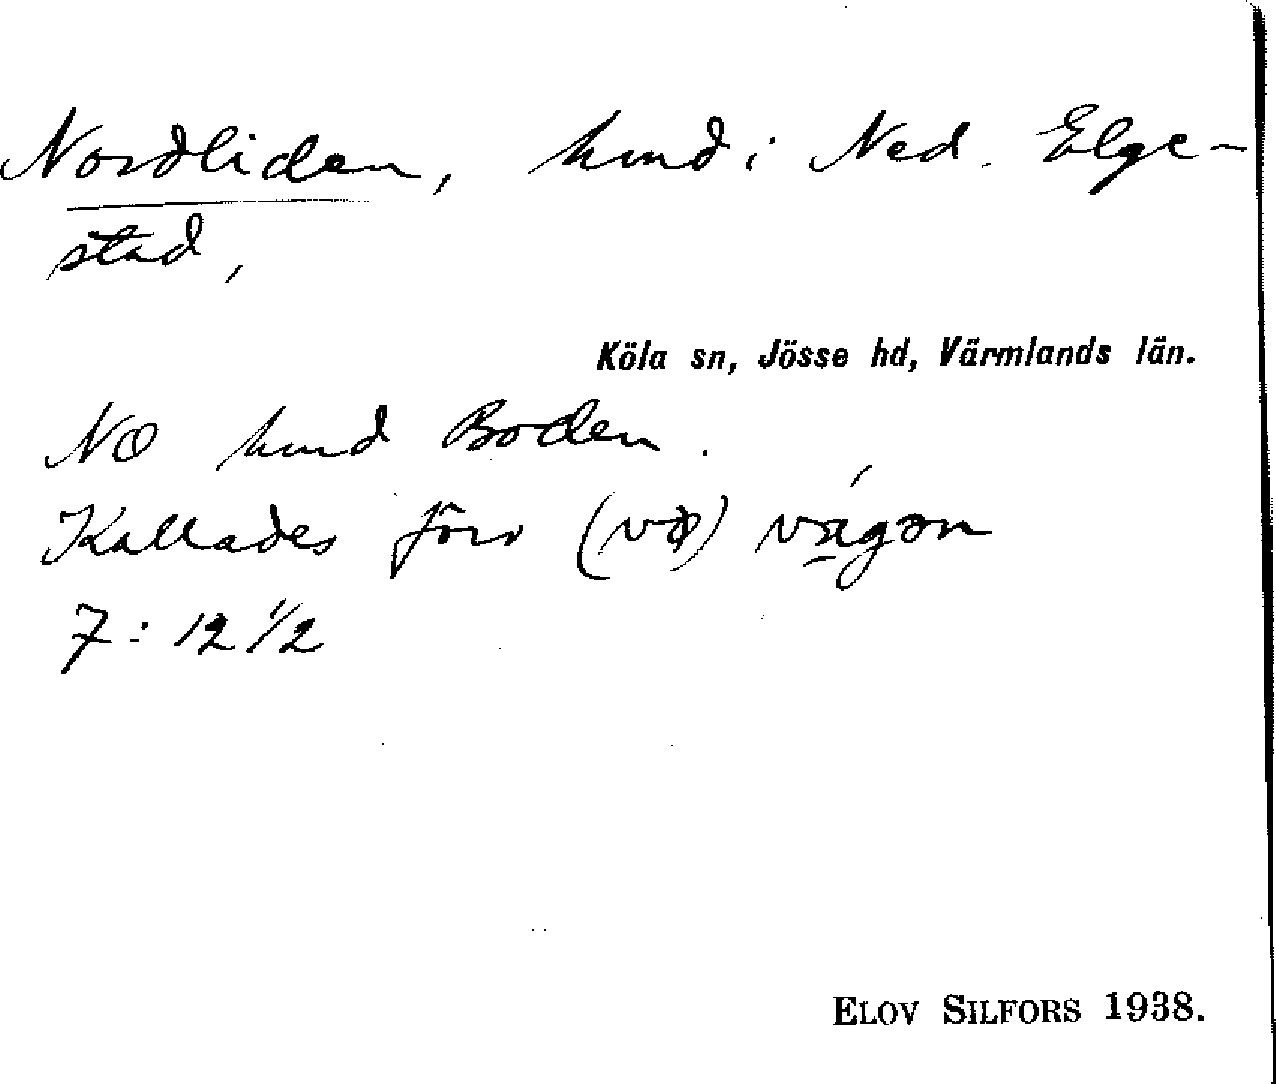 Nordliden, hmd i Ned. Elge-
stad,
Köla sn, Jösse hd, Värmlands län.
NO hmd Boden.
Kallades förr (və) vágən
7: 12 1/2
ELOV SILFORS 1938.